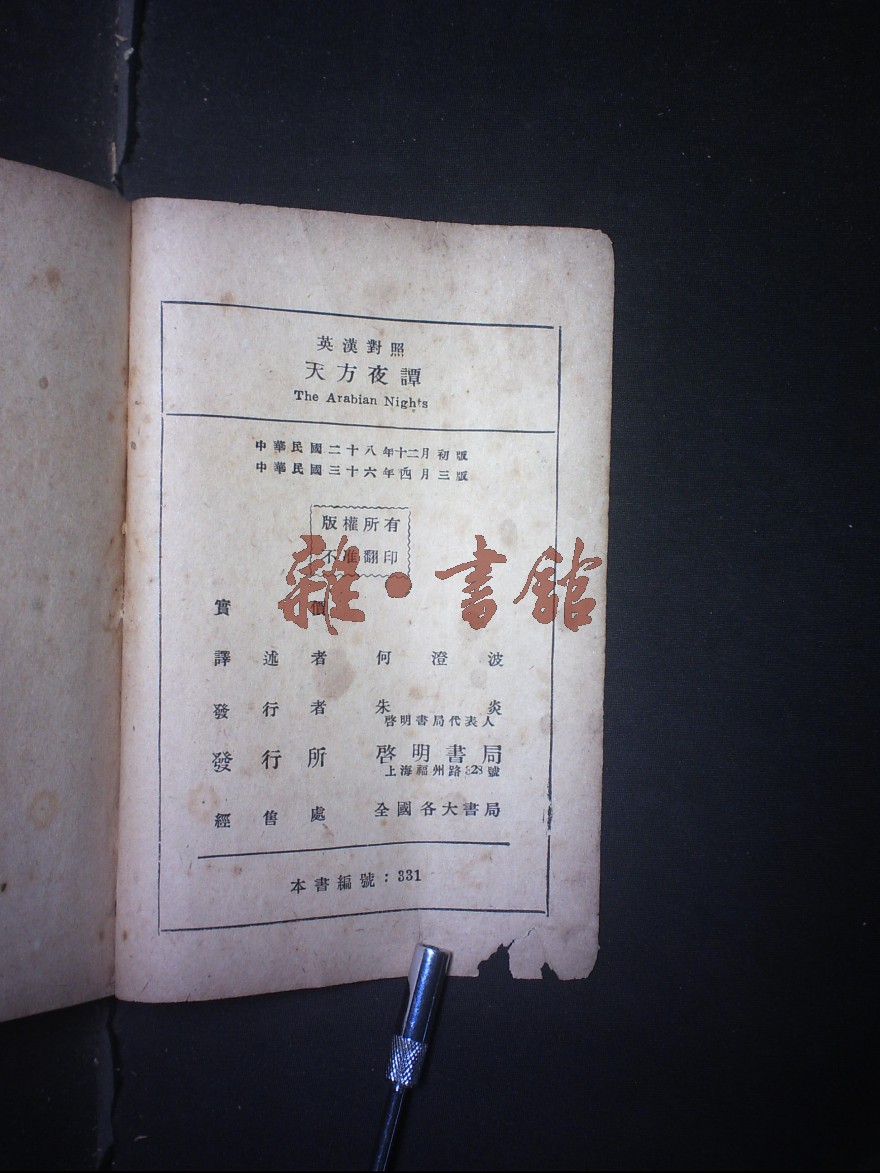 英漢對照
天方夜譚
The Arabian Nights
中華民國二十八年十二月初版
中華民國三十六年四月三版
版權所有
不准翻印
實價
譯述者 何澄波
發行者 朱炎
啓明書局代表人
發行所 啓明書局
上海福州路328號
經售處 全國各大書局
本書編號：331
雜·書館